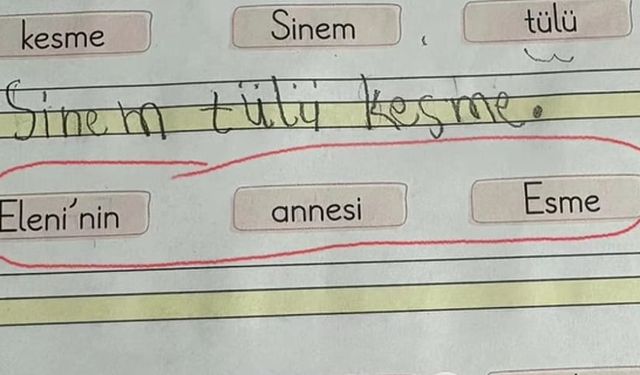 kesme Sinem tülü
Sinem tülü kesme.
Eleni'nin annesi Esme